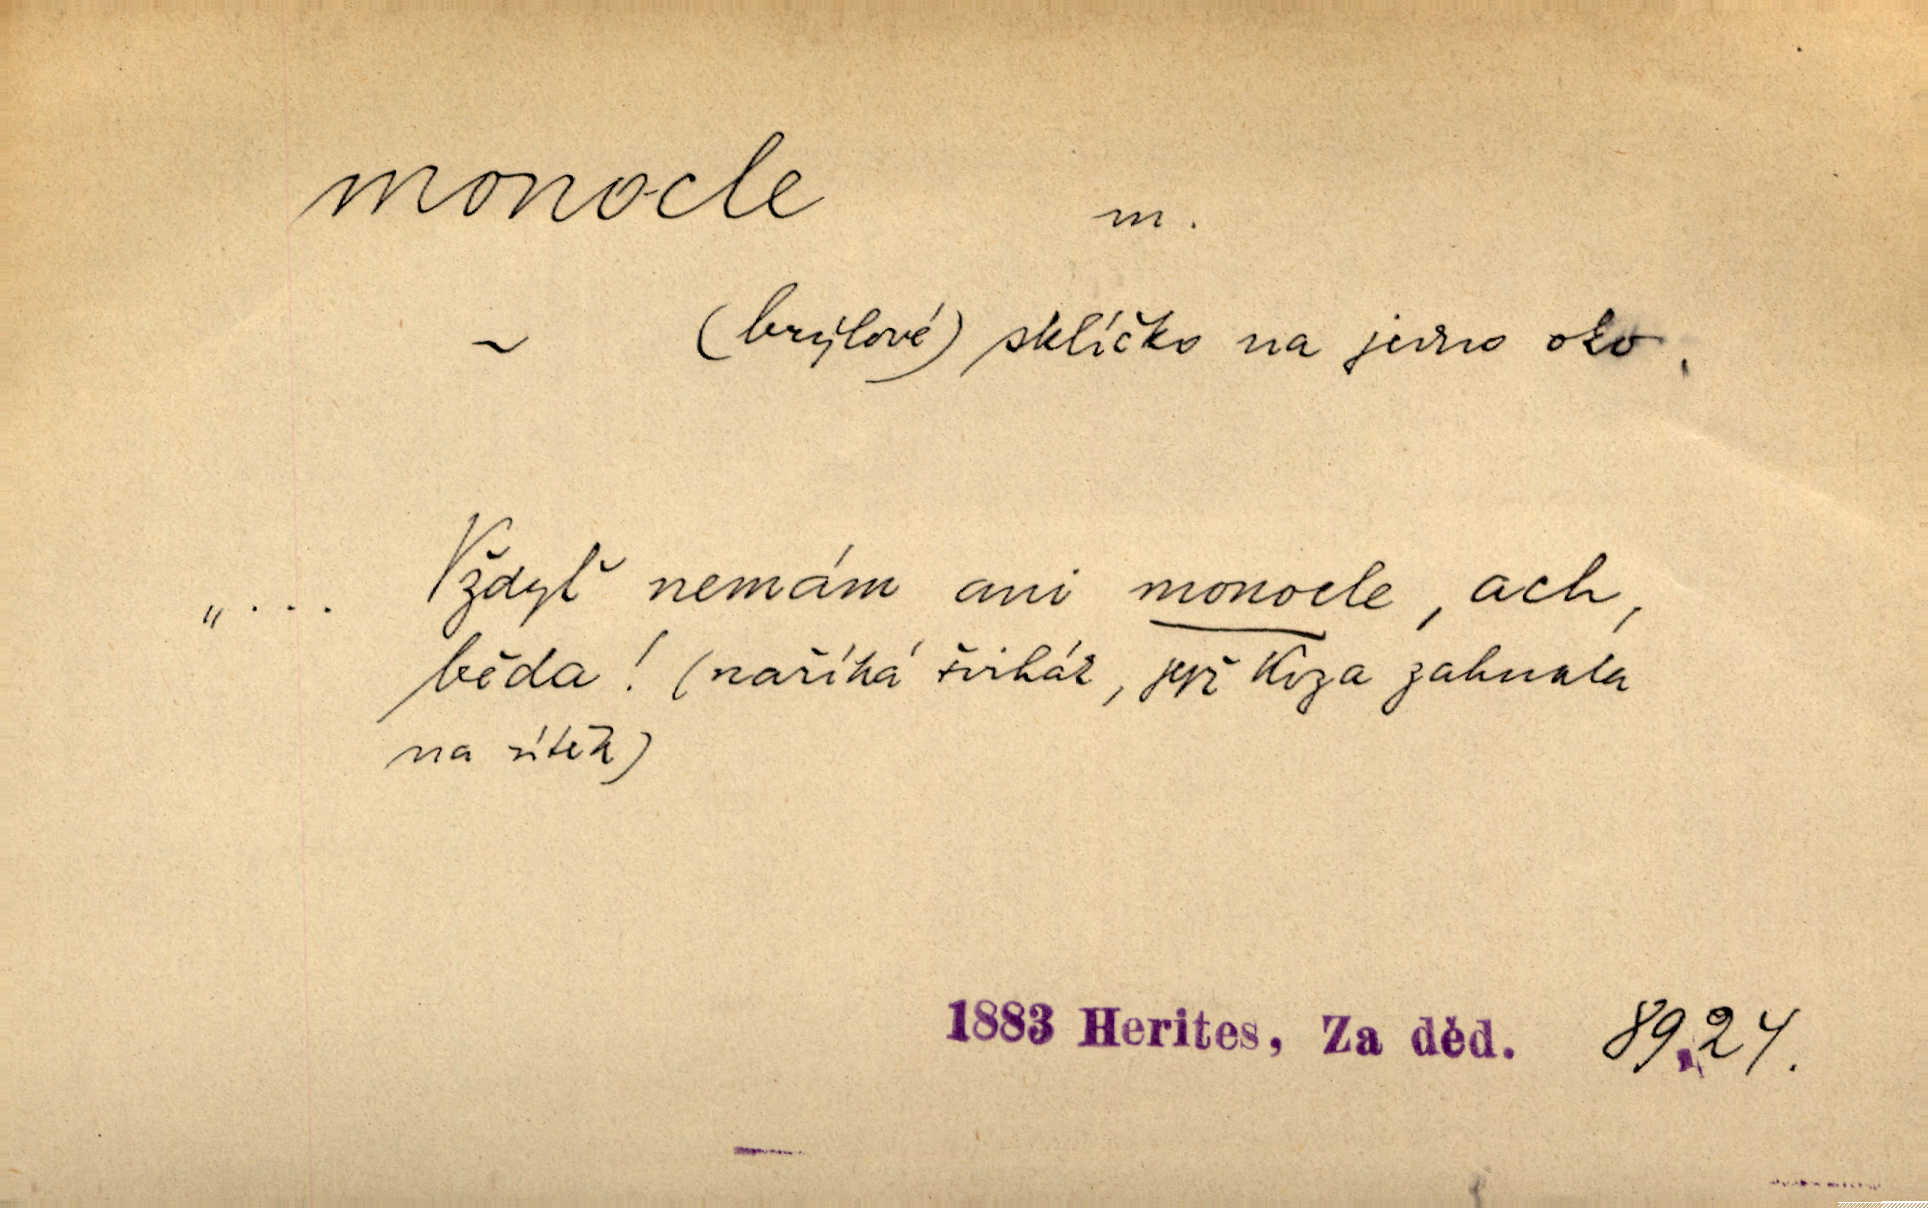 monocle m.
~ (brýlové) sklíčko na jedno oko.
„ . . . Vždyť nemám ani monocle, ach,
běda! (naříká švihák, jejž Koza zahnala
na útěk)
1883 Herites, Za děd. 89,24.